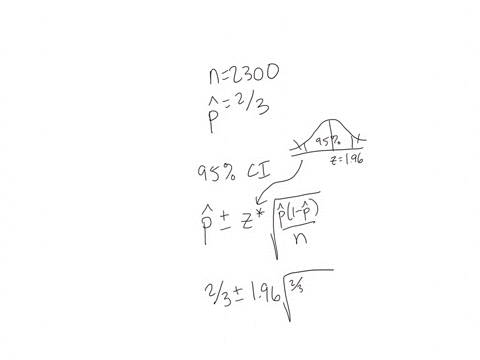 n=2300
p̂=2/3
95%
z=1.96
95% CI
p̂ ± z* √(p̂(1-p̂)/n)
2/3 ± 1.96 √(2/3